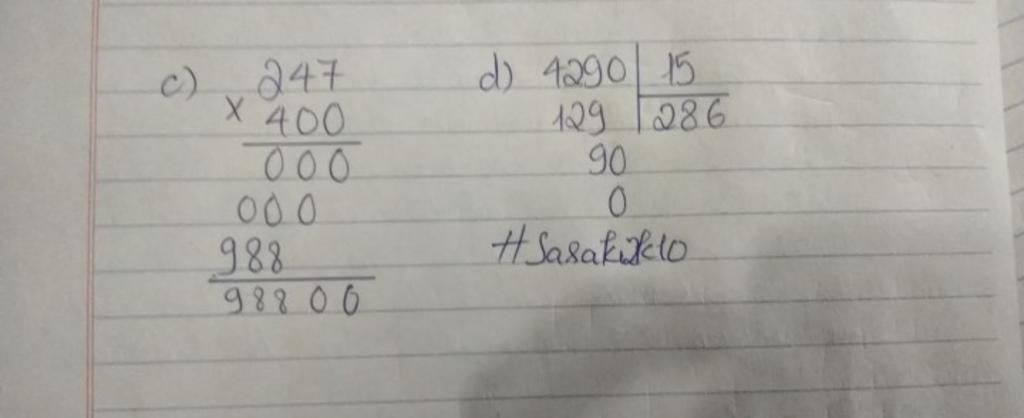 c) 247
x 400
000
000
988
98800
d) 4290 15
129 286
90
0